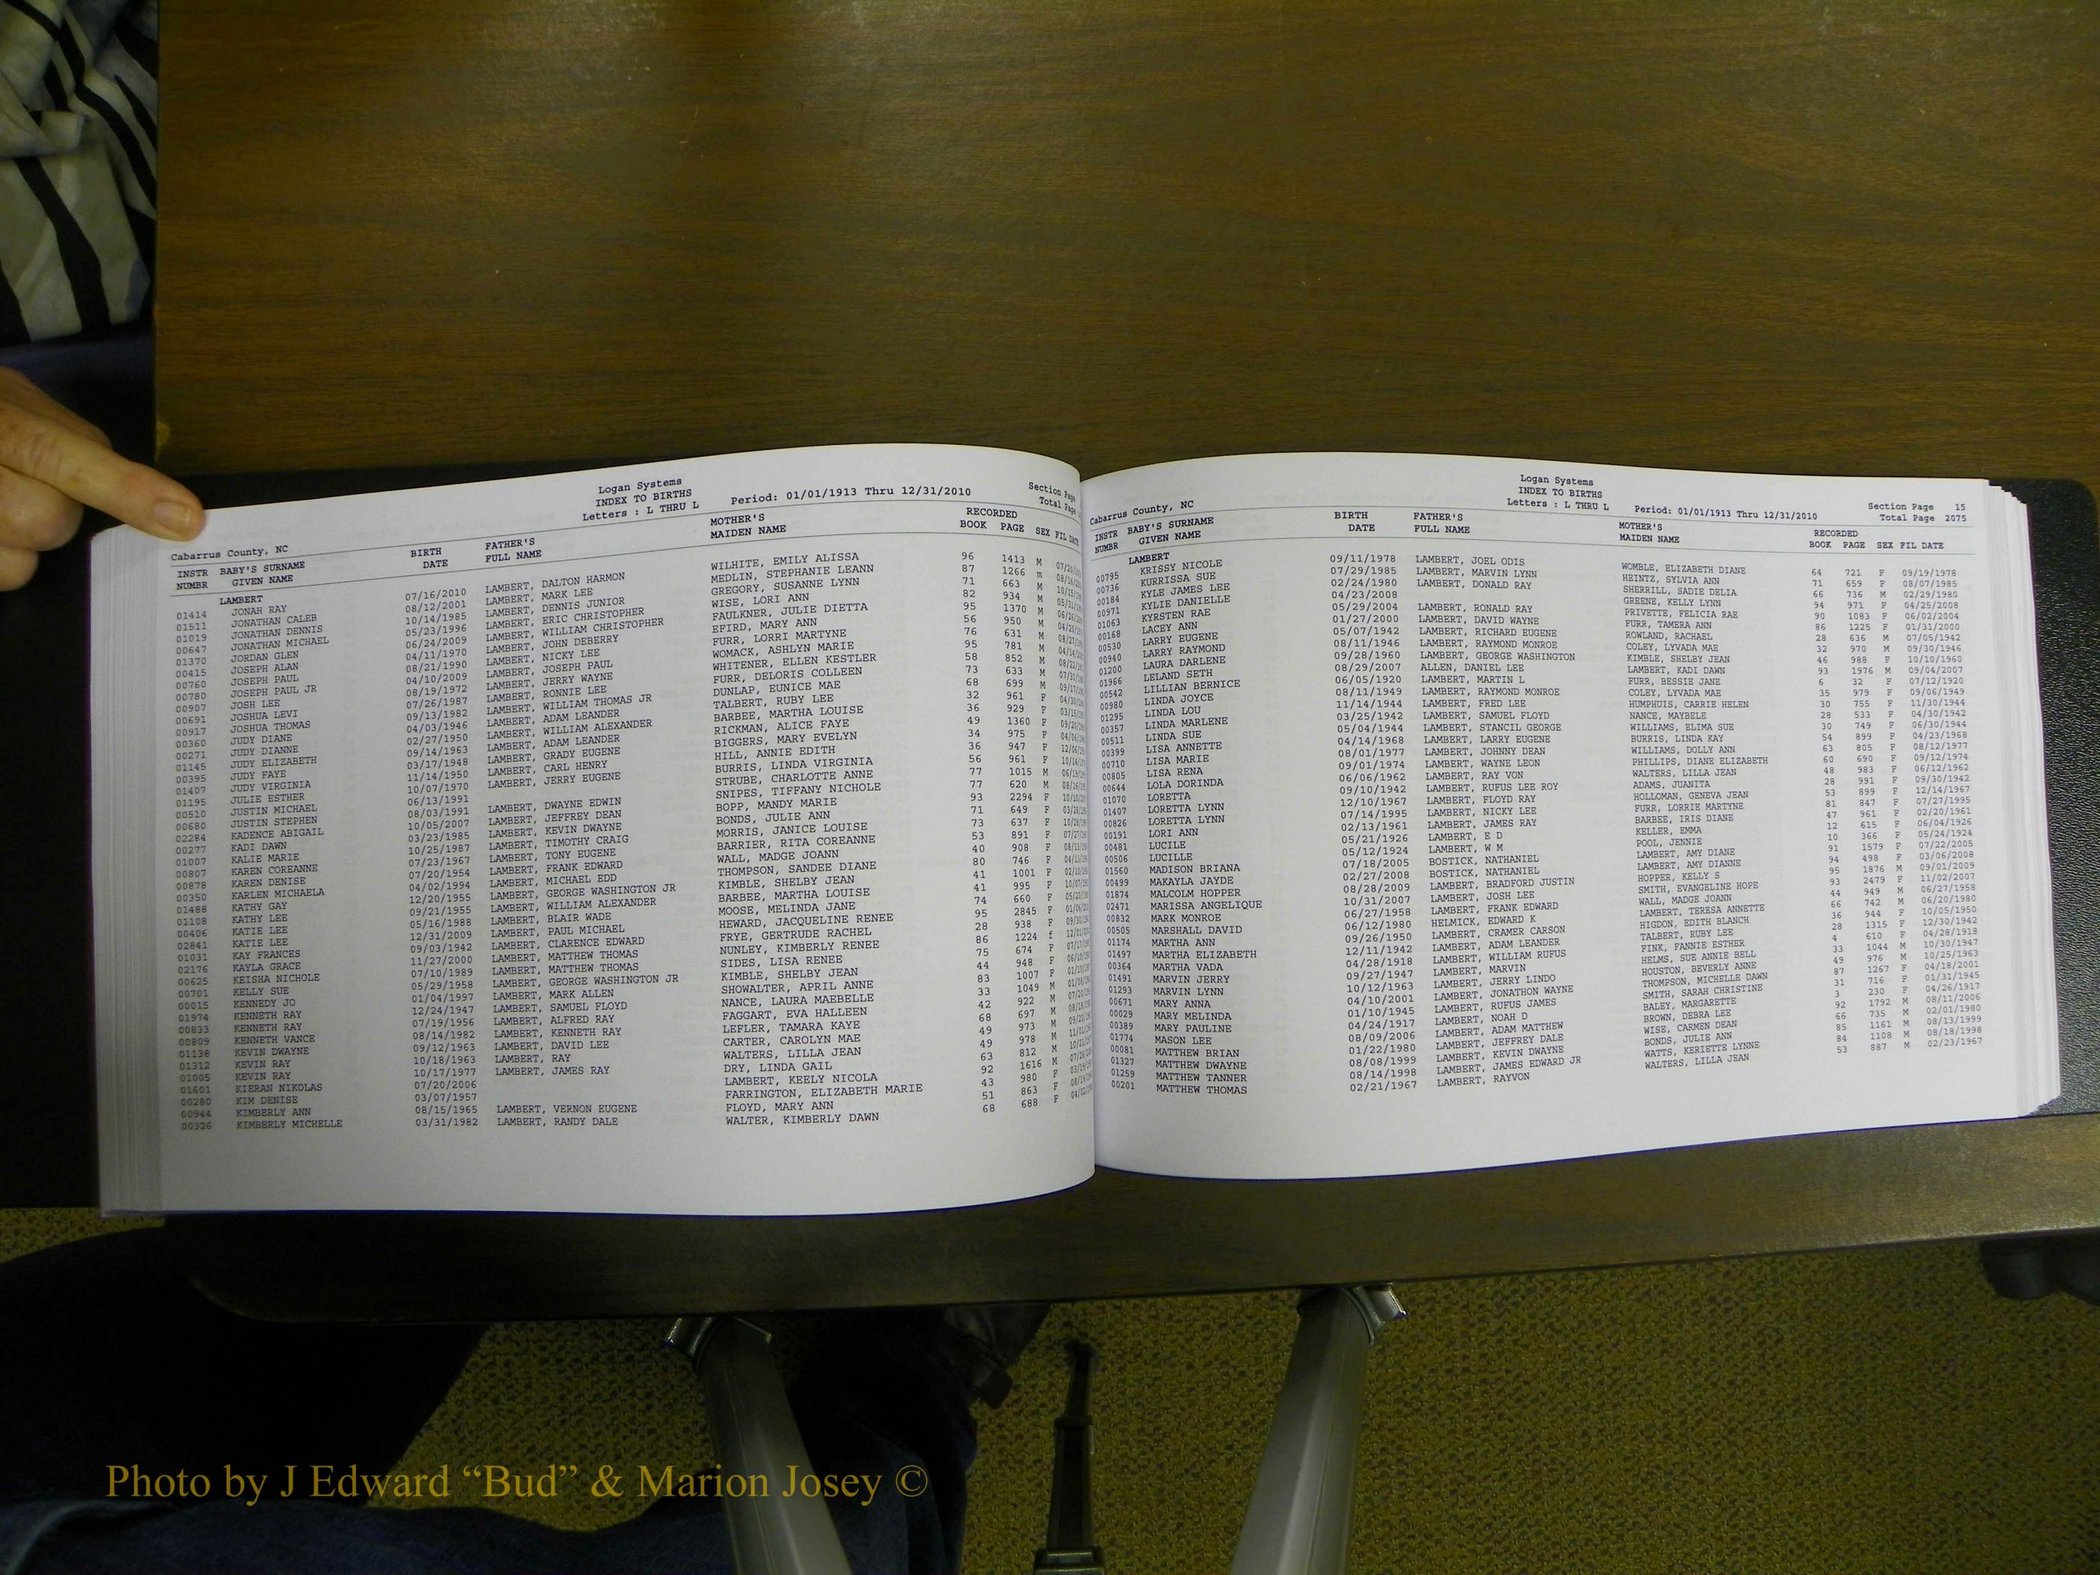 Logan Systems
INDEX TO BIRTHS
Letters : L THRU L Period: 01/01/1913 Thru 12/31/2010
Section Page
Total Page
Cabarrus County, NC
INSTR BABY'S SURNAME BIRTH FATHER'S MOTHER'S RECORDED
NUMBR GIVEN NAME DATE FULL NAME MAIDEN NAME BOOK PAGE SEX FIL DATE
LAMBERT
01414 JONAH RAY 07/16/2010 LAMBERT, DALTON HARMON WILHITE, EMILY ALISSA 96 1413 M
01511 JONATHAN CALEB 08/12/2001 LAMBERT, MARK LEE MEDLIN, STEPHANIE LEANN 87 1266 m
01019 JONATHAN DENNIS 10/14/1985 LAMBERT, DENNIS JUNIOR GREGORY, SUSANNE LYNN 71 663 M
00647 JONATHAN MICHAEL 05/23/1996 LAMBERT, ERIC CHRISTOPHER WISE, LORI ANN 82 934 M
01370 JORDAN GLEN 06/24/2009 LAMBERT, WILLIAM CHRISTOPHER FAULKNER, JULIE DIETTA 95 1370 M
00415 JOSEPH ALAN 04/11/1970 LAMBERT, JOHN DEBERRY EFIRD, MARY ANN 56 950 M
00760 JOSEPH PAUL 08/21/1990 LAMBERT, NICKY LEE FURR, LORRI MARTYNE 76 631 M
00780 JOSEPH PAUL JR 04/10/2009 LAMBERT, JOSEPH PAUL WOMACK, ASHLYN MARIE 95 781 M
00907 JOSH LEE 08/19/1972 LAMBERT, JERRY WAYNE WHITENER, ELLEN KESTLER 58 852 M
00691 JOSHUA LEVI 07/26/1987 LAMBERT, RONNIE LEE FURR, DELORIS COLLEEN 73 633 M
00917 JOSHUA THOMAS 09/13/1982 LAMBERT, WILLIAM THOMAS JR DUNLAP, EUNICE MAE 68 699 M
00360 JUDY DIANE 04/03/1946 LAMBERT, ADAM LEANDER TALBERT, RUBY LEE 32 961 F
00271 JUDY DIANNE 02/27/1950 LAMBERT, WILLIAM ALEXANDER BARBEE, MARTHA LOUISE 36 929 F
01145 JUDY ELIZABETH 09/14/1963 LAMBERT, ADAM LEANDER RICKMAN, ALICE FAYE 49 1360 F
00395 JUDY FAYE 03/17/1948 LAMBERT, GRADY EUGENE BIGGERS, MARY EVELYN 34 975 F
01407 JUDY VIRGINIA 11/14/1950 LAMBERT, CARL HENRY HILL, ANNIE EDITH 36 947 F
01195 JULIE ESTHER 10/07/1970 LAMBERT, JERRY EUGENE BURRIS, LINDA VIRGINIA 56 961 F
00510 JUSTIN MICHAEL 06/13/1991 STRUBE, CHARLOTTE ANNE 77 1015 M
00680 JUSTIN STEPHEN 08/03/1991 LAMBERT, DWAYNE EDWIN SNIPES, TIFFANY NICHOLE 77 620 M
02284 KADENCE ABIGAIL 10/05/2007 LAMBERT, JEFFREY DEAN BOPP, MANDY MARIE 93 2294 F
00277 KADI DAWN 03/23/1985 LAMBERT, KEVIN DWAYNE BONDS, JULIE ANN 71 649 F
01007 KALIE MARIE 10/25/1987 LAMBERT, TIMOTHY CRAIG MORRIS, JANICE LOUISE 73 637 F
00807 KAREN COREANNE 07/23/1967 LAMBERT, TONY EUGENE BARRIER, RITA COREANNE 53 891 F
00878 KAREN DENISE 07/20/1954 LAMBERT, FRANK EDWARD WALL, MADGE JOANN 40 908 F
00350 KARLEN MICHAELA 04/02/1994 LAMBERT, MICHAEL EDD THOMPSON, SANDEE DIANE 80 746 F
01488 KATHY GAY 12/20/1955 LAMBERT, GEORGE WASHINGTON JR KIMBLE, SHELBY JEAN 41 1001 F
01108 KATHY LEE 09/21/1955 LAMBERT, WILLIAM ALEXANDER BARBEE, MARTHA LOUISE 41 995 F
00406 KATIE LEE 05/16/1988 LAMBERT, BLAIR WADE MOOSE, MELINDA JANE 74 660 F
02841 KATIE LEE 12/31/2009 LAMBERT, PAUL MICHAEL HEWARD, JACQUELINE RENEE 95 2845 F
01031 KAY FRANCES 09/03/1942 LAMBERT, CLARENCE EDWARD FRYE, GERTRUDE RACHEL 28 938 F
02176 KAYLA GRACE 11/27/2000 LAMBERT, MATTHEW THOMAS NUNLEY, KIMBERLY RENEE 86 1224 f
00625 KEISHA NICHOLE 07/10/1989 LAMBERT, MATTHEW THOMAS SIDES, LISA RENEE 75 674 F
00701 KELLY SUE 05/29/1958 LAMBERT, GEORGE WASHINGTON JR KIMBLE, SHELBY JEAN 44 948 F
00015 KENNEDY JO 01/04/1997 LAMBERT, MARK ALLEN SHOWALTER, APRIL ANNE 83 1007 F
01974 KENNETH RAY 12/24/1947 LAMBERT, SAMUEL FLOYD NANCE, LAURA MAEBELLE 33 1049 M
00833 KENNETH RAY 07/19/1956 LAMBERT, ALFRED RAY FAGGART, EVA HALLEEN 42 922 M
00809 KENNETH VANCE 08/14/1982 LAMBERT, KENNETH RAY LEFLER, TAMARA KAYE 68 697 M
01138 KEVIN DWAYNE 09/12/1963 LAMBERT, DAVID LEE CARTER, CAROLYN MAE 49 973 M
01312 KEVIN RAY 10/18/1963 LAMBERT, RAY WALTERS, LILLA JEAN 49 978 M
01005 KEVIN RAY 10/17/1977 LAMBERT, JAMES RAY DRY, LINDA GAIL 63 812 M
01601 KIERAN NIKOLAS 07/20/2006 LAMBERT, KEELY NICOLA 92 1616 M
00280 KIM DENISE 03/07/1957 FARRINGTON, ELIZABETH MARIE 43 980 F
00944 KIMBERLY ANN 08/15/1965 LAMBERT, VERNON EUGENE FLOYD, MARY ANN 51 863 F
00326 KIMBERLY MICHELLE 03/31/1982 LAMBERT, RANDY DALE WALTER, KIMBERLY DAWN 68 688 F
Logan Systems
INDEX TO BIRTHS
Letters : L THRU L Period: 01/01/1913 Thru 12/31/2010
Section Page 15
Total Page 2075
Cabarrus County, NC
INSTR BABY'S SURNAME BIRTH FATHER'S MOTHER'S RECORDED
NUMBR GIVEN NAME DATE FULL NAME MAIDEN NAME BOOK PAGE SEX FIL DATE
LAMBERT
00795 KRISSY NICOLE 09/11/1978 LAMBERT, JOEL ODIS WOMBLE, ELIZABETH DIANE 64 721 F 09/19/1978
00736 KURRISSA SUE 07/29/1985 LAMBERT, MARVIN LYNN HEINTZ, SYLVIA ANN 71 659 F 08/07/1985
00184 KYLE JAMES LEE 02/24/1980 LAMBERT, DONALD RAY SHERRILL, SADIE DELIA 66 736 M 02/29/1980
00971 KYLIE DANIELLE 04/23/2008 GREENE, KELLY LYNN 94 971 F 04/25/2008
01063 KYRSTEN RAE 05/29/2004 LAMBERT, RONALD RAY PRIVETTE, FELICIA RAE 90 1083 F 06/02/2004
00168 LACEY ANN 01/27/2000 LAMBERT, DAVID WAYNE FURR, TAMERA ANN 86 1225 F 01/31/2000
00530 LARRY EUGENE 05/07/1942 LAMBERT, RICHARD EUGENE ROWLAND, RACHAEL 28 636 M 07/05/1942
00940 LARRY RAYMOND 08/11/1946 LAMBERT, RAYMOND MONROE COLEY, LYVADA MAE 32 970 M 09/30/1946
01200 LAURA DARLENE 09/28/1960 LAMBERT, GEORGE WASHINGTON KIMBLE, SHELBY JEAN 46 988 F 10/10/1960
01966 LELAND SETH 08/29/2007 ALLEN, DANIEL LEE LAMBERT, KADI DAWN 93 1976 M 09/04/2007
00542 LILLIAN BERNICE 06/05/1920 LAMBERT, MARTIN L FURR, BESSIE JANE 6 32 F 07/12/1920
00980 LINDA JOYCE 08/11/1949 LAMBERT, RAYMOND MONROE COLEY, LYVADA MAE 35 979 F 09/06/1949
01295 LINDA LOU 11/14/1944 LAMBERT, FRED LEE HUMPHUIS, CARRIE HELEN 30 755 F 11/30/1944
00357 LINDA MARLENE 03/25/1942 LAMBERT, SAMUEL FLOYD NANCE, MAYBELE 28 533 F 04/30/1942
00511 LINDA SUE 05/04/1944 LAMBERT, STANCIL GEORGE WILLIAMS, ELIMA SUE 30 749 F 06/30/1944
00399 LISA ANNETTE 04/14/1968 LAMBERT, LARRY EUGENE BURRIS, LINDA KAY 54 899 F 04/23/1968
00710 LISA MARIE 08/01/1977 LAMBERT, JOHNNY DEAN WILLIAMS, DOLLY ANN 63 805 F 08/12/1977
00805 LISA RENA 09/01/1974 LAMBERT, WAYNE LEON PHILLIPS, DIANE ELIZABETH 60 690 F 09/12/1974
00644 LOLA DORINDA 06/06/1962 LAMBERT, RAY VON WALTERS, LILLA JEAN 48 983 F 06/12/1962
01070 LORETTA 09/10/1942 LAMBERT, RUFUS LEE ROY ADAMS, JUANITA 28 991 F 09/30/1942
01407 LORETTA LYNN 12/10/1967 LAMBERT, FLOYD RAY HOLLOMAN, GENEVA JEAN 53 899 F 12/14/1967
00826 LORETTA LYNN 07/14/1995 LAMBERT, NICKY LEE FURR, LORRIE MARTYNE 81 847 F 07/27/1995
00191 LORI ANN 02/13/1961 LAMBERT, JAMES RAY BARBEE, IRIS DIANE 47 961 F 02/20/1961
00481 LUCILE 05/21/1926 LAMBERT, E D KELLER, EMMA 12 615 F 06/04/1926
00506 LUCILLE 05/12/1924 LAMBERT, W M POOL, JENNIE 10 366 F 05/24/1924
01560 MADISON BRIANA 07/18/2005 BOSTICK, NATHANIEL LAMBERT, AMY DIANE 91 1579 F 07/22/2005
00499 MAKAYLA JAYDE 02/27/2008 BOSTICK, NATHANIEL LAMBERT, AMY DIANNE 94 498 F 03/06/2008
01874 MALCOLM HOPPER 08/28/2009 LAMBERT, BRADFORD JUSTIN HOPPER, KELLY S 95 1876 M 09/01/2009
02471 MARISSA ANGELIQUE 10/31/2007 LAMBERT, JOSH LEE SMITH, EVANGELINE HOPE 93 2479 F 11/02/2007
00832 MARK MONROE 06/27/1958 LAMBERT, FRANK EDWARD WALL, MADGE JOANN 44 949 M 06/27/1958
00505 MARSHALL DAVID 06/12/1980 HELMICK, EDWARD K LAMBERT, TERESA ANNETTE 66 742 M 06/20/1980
01174 MARTHA ANN 09/26/1950 LAMBERT, CRAMER CARSON HIGDON, EDITH BLANCH 36 944 F 10/05/1950
01497 MARTHA ELIZABETH 12/11/1942 LAMBERT, ADAM LEANDER TALBERT, RUBY LEE 28 1315 F 12/30/1942
00364 MARTHA VADA 04/28/1918 LAMBERT, WILLIAM RUFUS FINK, FANNIE ESTHER 4 610 F 04/28/1918
01491 MARVIN JERRY 09/27/1947 LAMBERT, MARVIN HELMS, SUE ANNIE BELL 33 1044 M 10/30/1947
01293 MARVIN LYNN 10/12/1963 LAMBERT, JERRY LINDO HOUSTON, BEVERLY ANNE 49 976 M 10/25/1963
00671 MARY ANNA 04/10/2001 LAMBERT, JONATHON WAYNE THOMPSON, MICHELLE DAWN 87 1267 F 04/18/2001
00029 MARY MELINDA 01/10/1945 LAMBERT, RUFUS JAMES SMITH, SARAH CHRISTINE 31 716 F 01/31/1945
00389 MARY PAULINE 04/24/1917 LAMBERT, NOAH D BALEY, MARGARETTE 3 230 F 04/26/1917
01774 MASON LEE 08/09/2006 LAMBERT, ADAM MATTHEW BROWN, DEBRA LEE 92 1792 M 08/11/2006
00081 MATTHEW BRIAN 01/22/1980 LAMBERT, JEFFREY DALE WISE, CARMEN DEAN 66 735 M 02/01/1980
01327 MATTHEW DWAYNE 08/08/1999 LAMBERT, KEVIN DWAYNE BONDS, JULIE ANN 85 1161 M 08/13/1999
01259 MATTHEW TANNER 08/14/1998 LAMBERT, JAMES EDWARD JR WATTS, KERIETTE LYNNE 84 1108 M 08/18/1998
00201 MATTHEW THOMAS 02/21/1967 LAMBERT, RAYVON WALTERS, LILLA JEAN 53 887 M 02/23/1967
Photo by J Edward “Bud” & Marion Josey ©